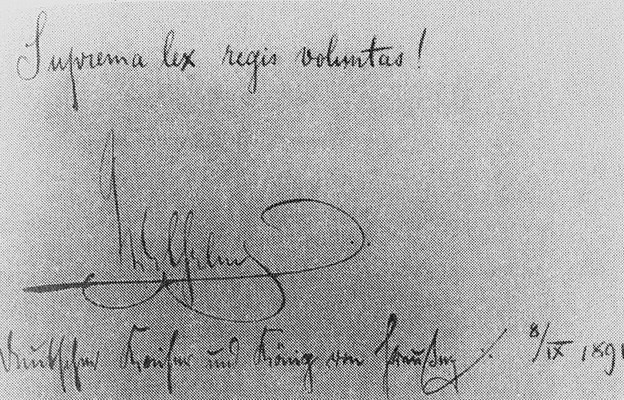 Suprema lex regis voluntas!
Wilhelm
Deutscher Kaiser und König von Preußen. 8/IX 1891